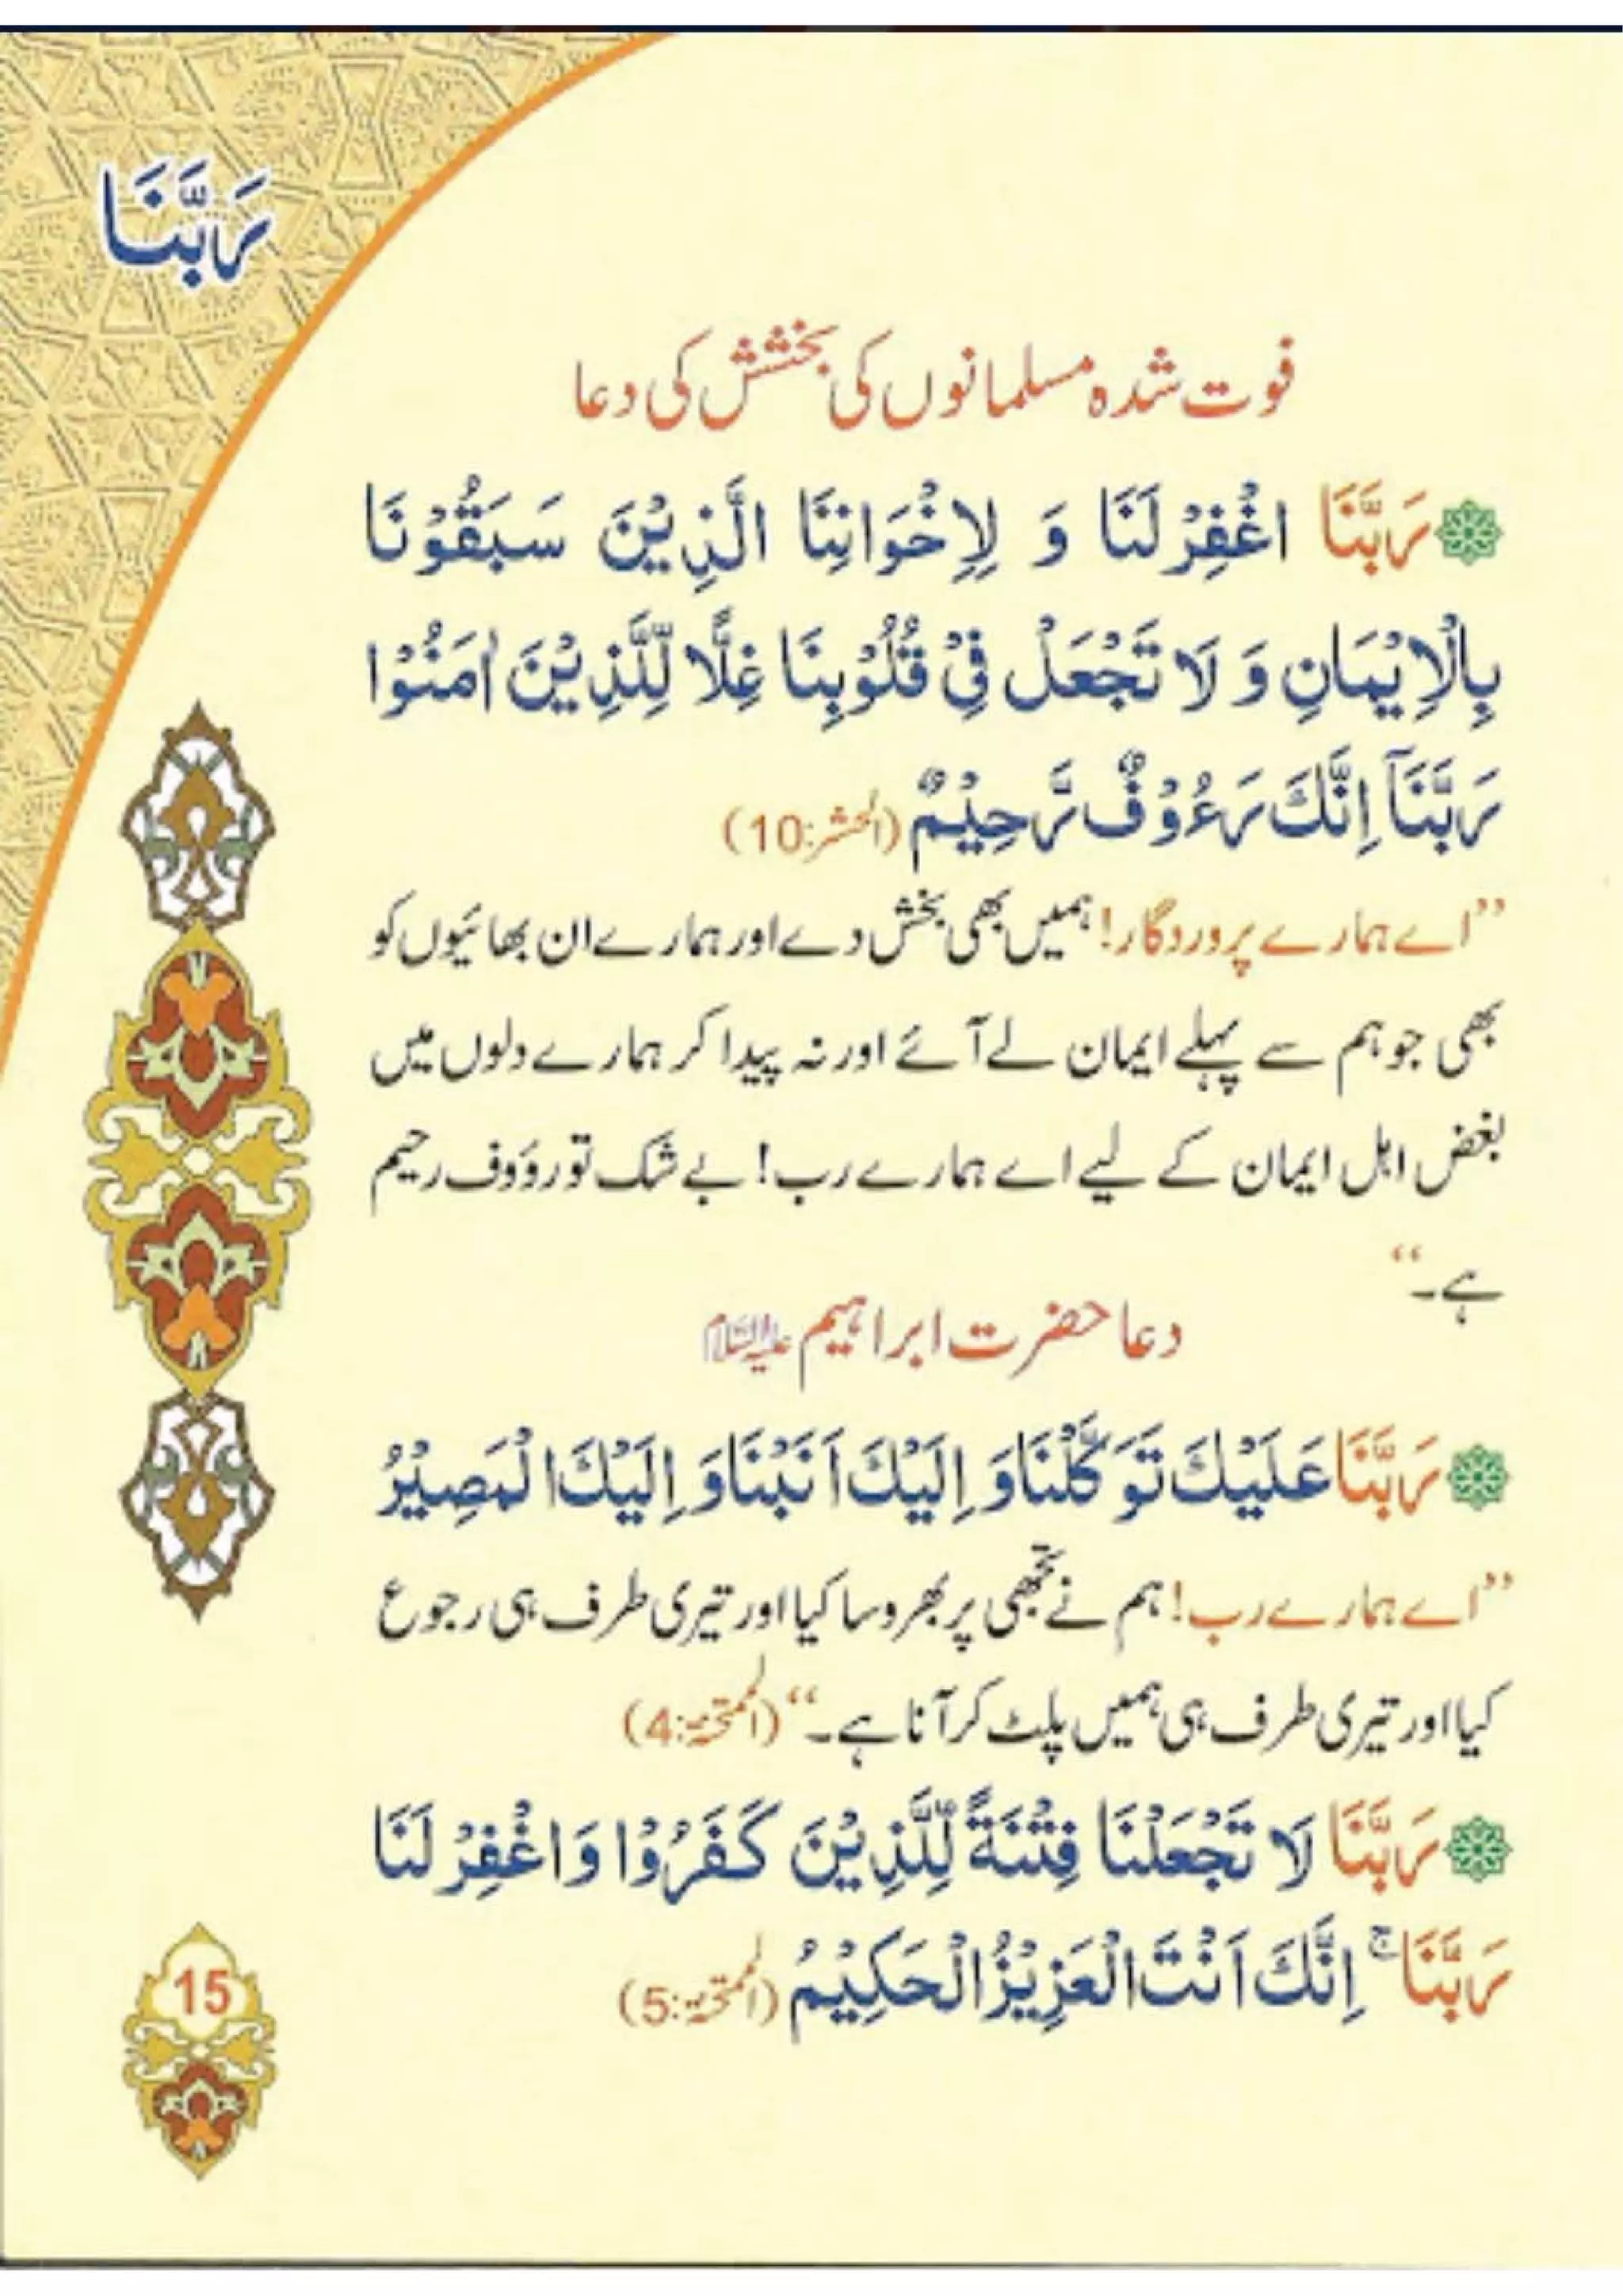 رَبَّنَا
فوت شدہ مسلمانوں کی بخشش کی دعا
رَبَّنَا اغْفِرْ لَنَا وَ لِاِخْوَانِنَا الَّذِيْنَ سَبَقُوْنَا
بِالْاِيْمَانِ وَ لَا تَجْعَلْ فِيْ قُلُوْبِنَا غِلًّا لِّلَّذِيْنَ اٰمَنُوْا
رَبَّنَآ اِنَّكَ رَءُوْفٌ رَّحِيْمٌ (الحشر:10)
”اے ہمارے پروردگار! ہمیں بھی بخش دے اور ہمارے ان بھائیوں کو
بھی جو ہم سے پہلے ایمان لے آئے اور نہ پیدا کر ہمارے دلوں میں
بغض اہل ایمان کے لیے اے ہمارے رب! بے شک تو رؤوف رحیم
ہے۔“
دعا حضرت ابراہیم علیہ السلام
رَبَّنَا عَلَيْكَ تَوَكَّلْنَا وَ اِلَيْكَ اَنَبْنَا وَ اِلَيْكَ الْمَصِيْرُ
”اے ہمارے رب! ہم نے تجھی پر بھروسا کیا اور تیری طرف ہی رجوع
کیا اور تیری طرف ہی ہمیں پلٹ کر آنا ہے۔“ (الممتحنۃ:4)
رَبَّنَا لَا تَجْعَلْنَا فِتْنَةً لِّلَّذِيْنَ كَفَرُوْا وَ اغْفِرْ لَنَا
رَبَّنَا ۚ اِنَّكَ اَنْتَ الْعَزِيْزُ الْحَكِيْمُ (الممتحنۃ:5)
15